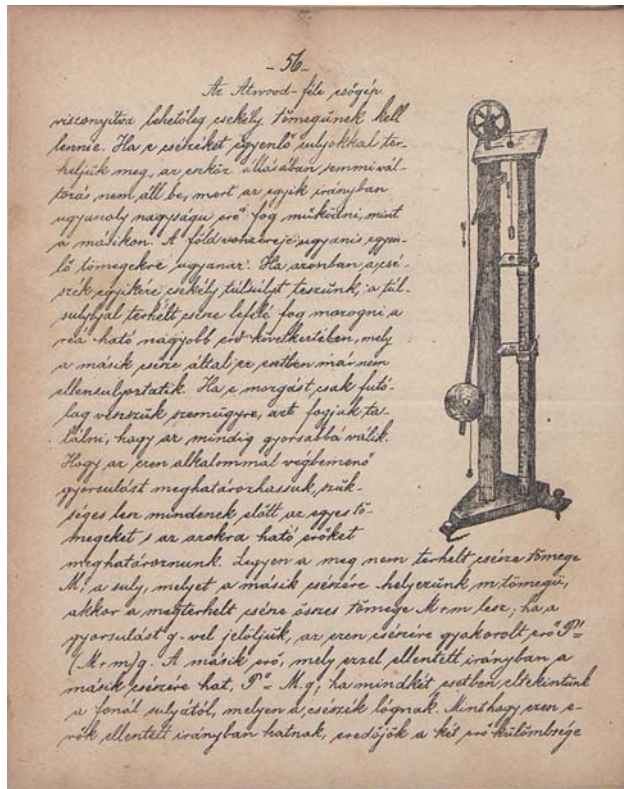 - 56 -
Az Atwood-féle esőgép.
viszonyítva lehetőleg csekély tömegünek kell
lennie. Ha e csészéket egyenlő sulyokkal ter-
heljük meg, az eszköz állásában semmi vál-
tozás nem áll be, mert az egyik irányban
ugyanoly nagyságu erő fog működni, mint
a másikon. A föld vonzereje ugyanis egyen-
lő tömegekre ugyanaz. Ha azonban a csé-
szék egyikére csekély túlsúlyt teszünk, a túl-
sulylyal terhelt csésze lefelé fog mozogni a
reá ható nagyobb erő következtében, mely
a másik csésze által ez esetben már nem
ellensulyoztatik. Ha e mozgást csak futó-
lag veszszük szemügyre, azt fogjuk ta-
lálni, hogy az mindig gyorsabbá válik.
Hogy az ezen alkalommal végbemenő
gyorsulást meghatározhassuk, szük-
séges lesz mindenek előtt az egyes tö-
megeket s az azokra ható erőket
meghatároznunk. Legyen a meg nem terhelt csésze tömege
M; a suly, melyet a másik csészére helyezünk m tömegü,
akkor a megterhelt csésze összes tömege M+m lesz; ha a
gyorsulást g-vel jelöljük, az ezen csészére gyakorolt erő P'=
(M+m)g. A másik erő, mely ezzel ellentett irányban a
másik csészére hat, P" = M.g; ha mindkét esetben eltekintünk
a fonál sulyától, melyen a csészék lógnak. Minthogy ezen e-
rők ellentett irányban hatnak, eredőjök a két erő külömbsége